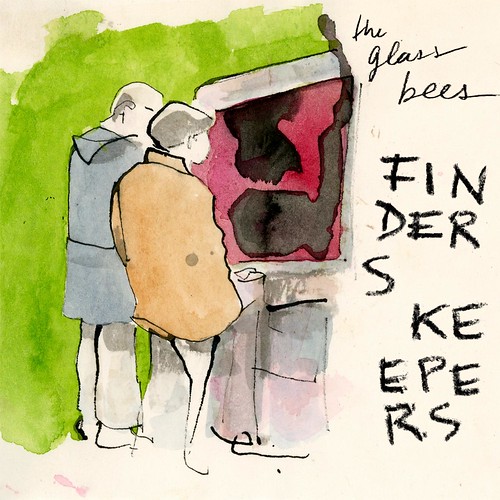 the
glass
bees
FIN
DER
S
KE
EPE
RS